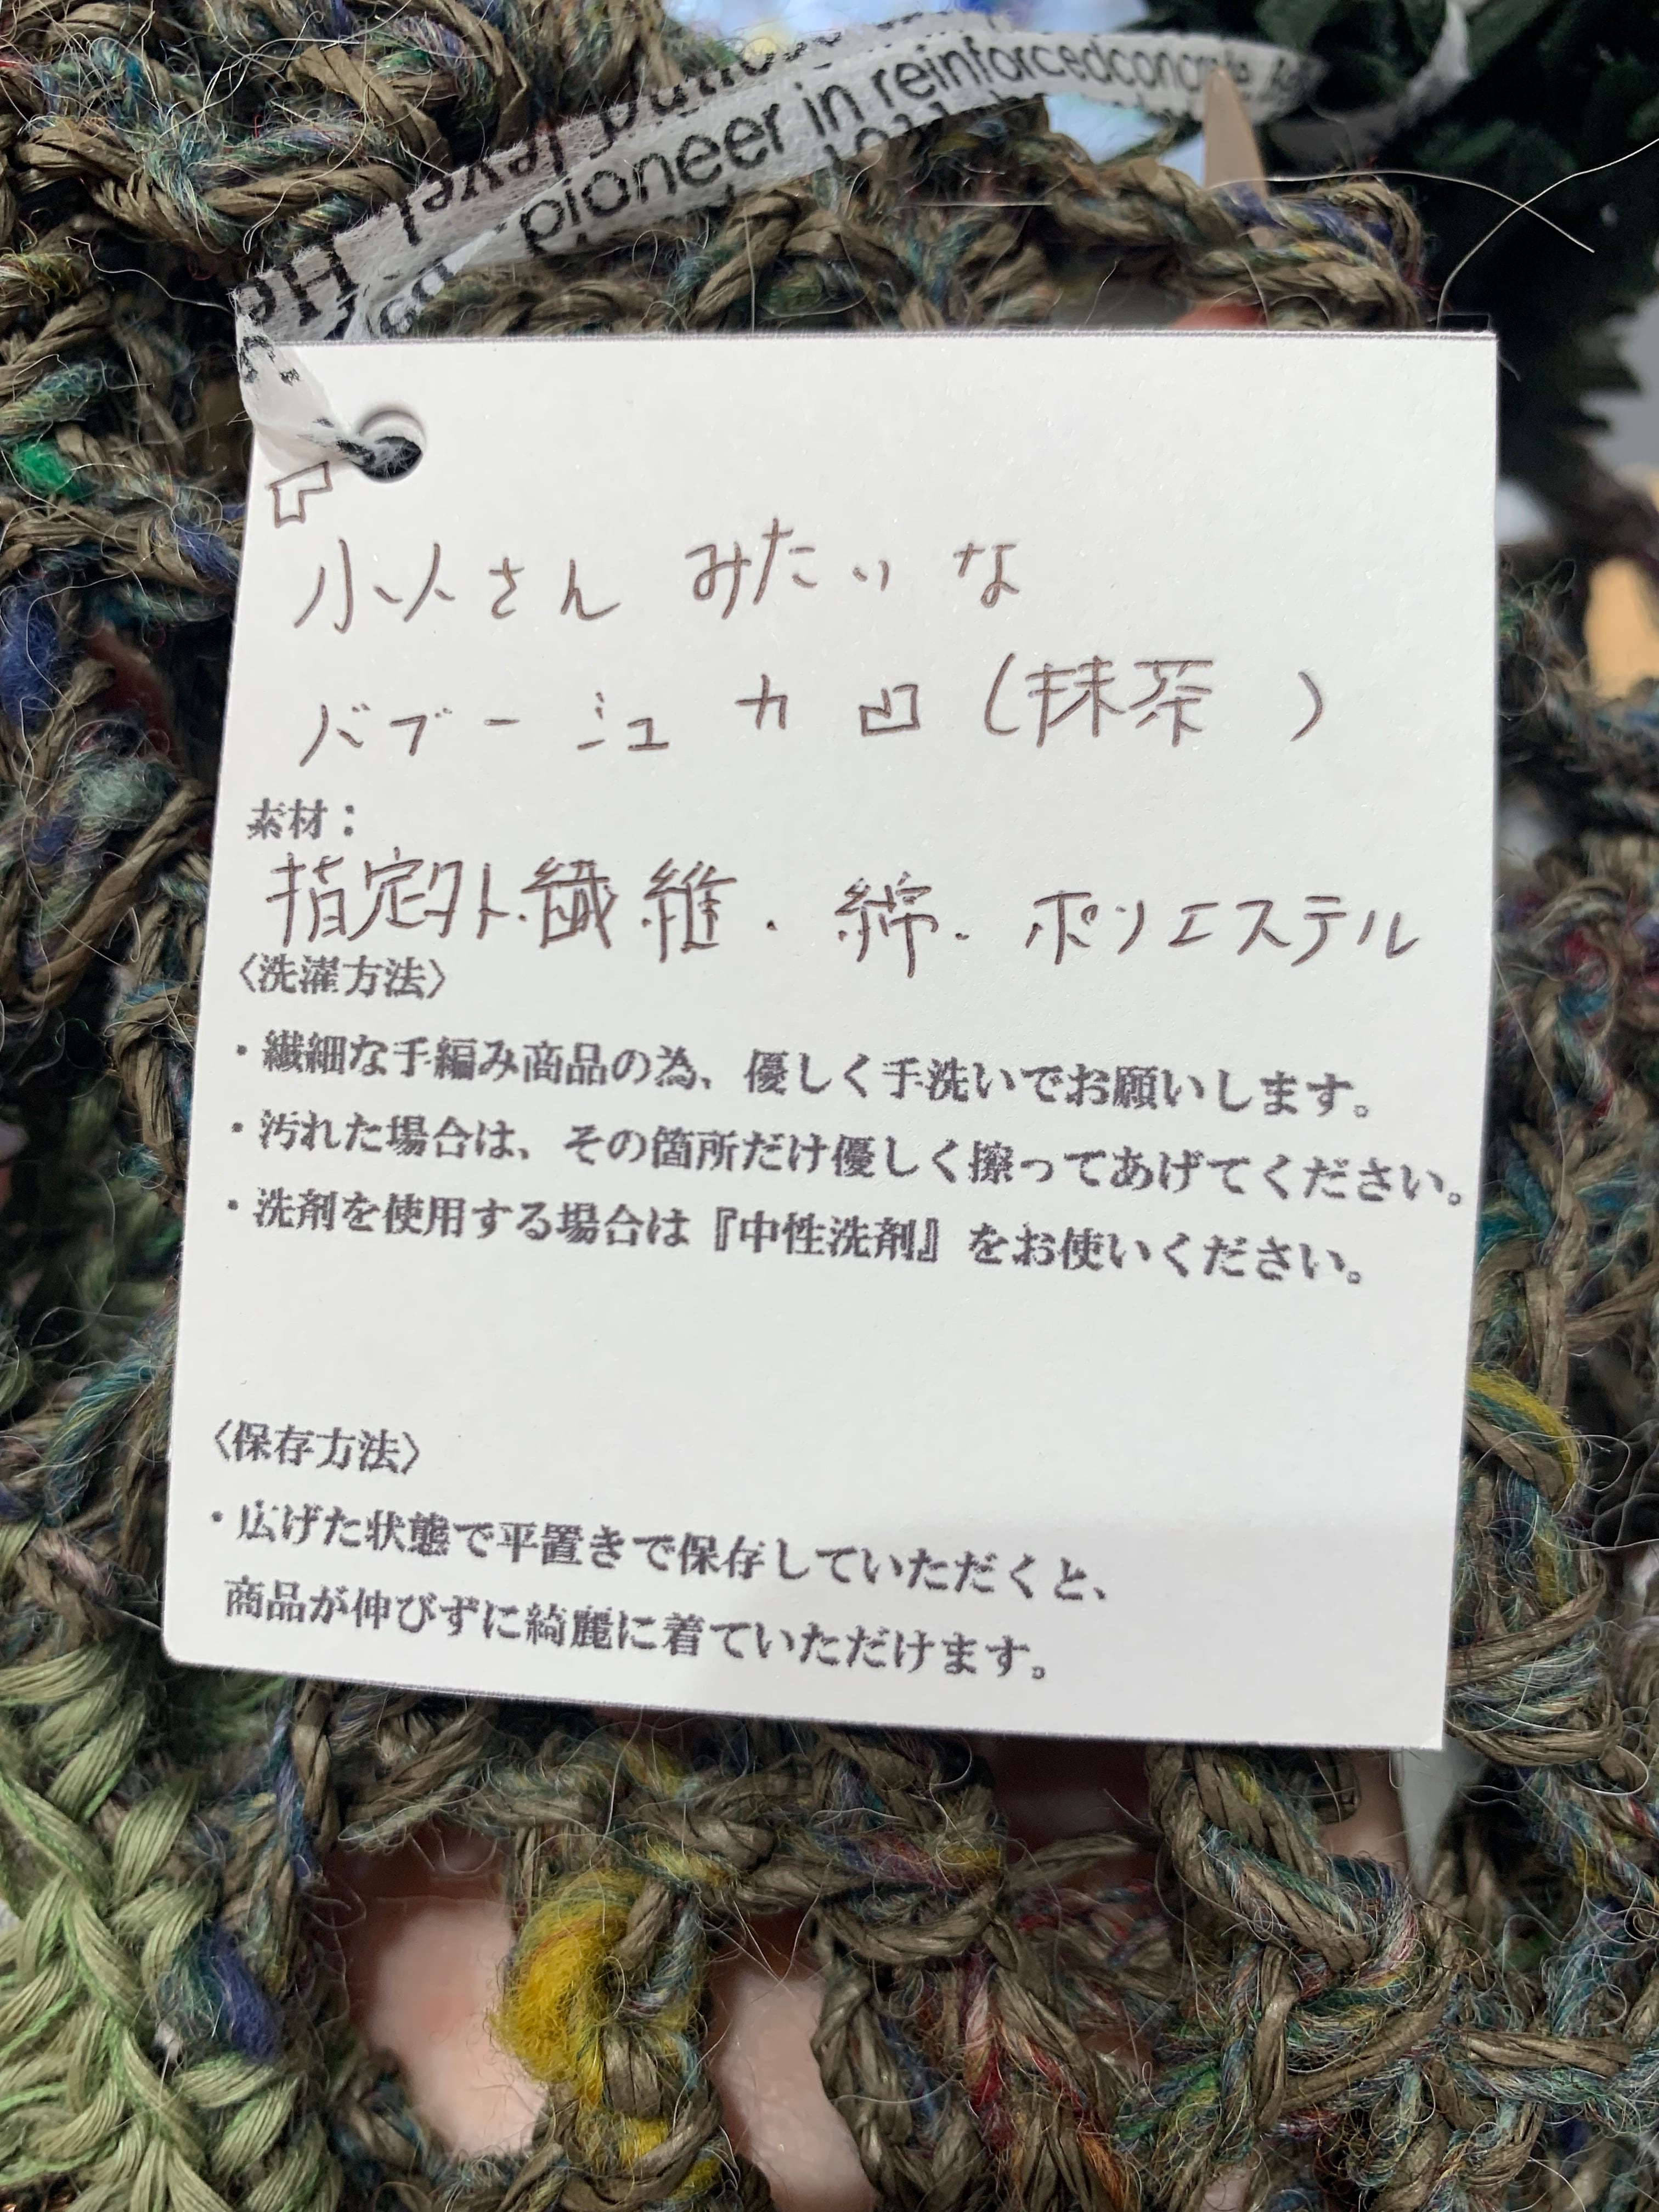 pioneer in reinforcedconcrete
level He
「
小人さん みたいな
バブーシュカ 」 (抹茶 )
素材:
指定外繊維・綿・ポリエステル
〈洗濯方法〉
・繊細な手編み商品の為、優しく手洗いでお願いします。
・汚れた場合は、その箇所だけ優しく擦ってあげてください。
・洗剤を使用する場合は『中性洗剤』をお使いください。
〈保存方法〉
・広げた状態で平置きで保存していただくと、
商品が伸びずに綺麗に着ていただけます。